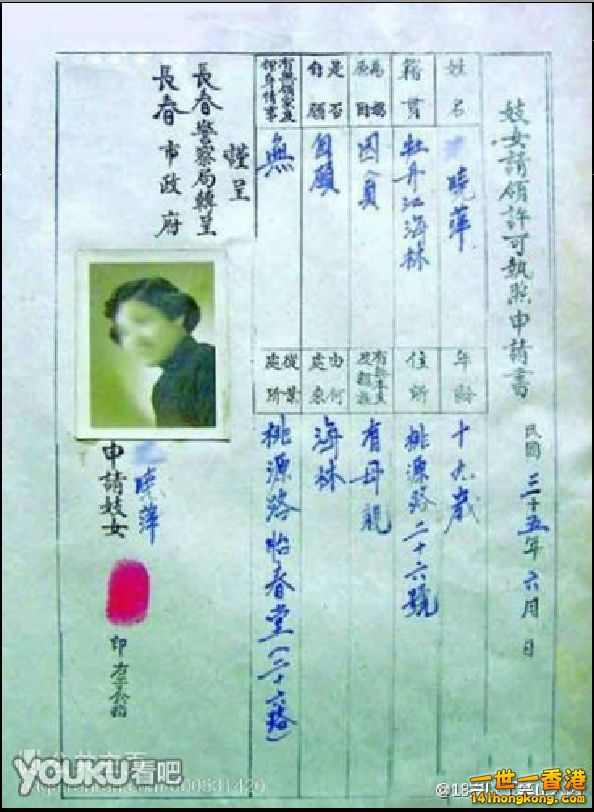 妓女請領許可執照申請書
民國三十五年六月 日
姓名
曉萍
年齡
十九歲
籍貫
牡丹江海林
住所
桃源路二十六號
為娼原因
因貧
有無本夫及親族
有母親
是否自願
自願
由何處來
海林
有無領家及押身情事
無
從業處所
桃源路怡春堂(二十六號)
謹呈
長春警察局轉呈
長春市政府
申請妓女
曉萍
印
YOUKU看吧
一世一香港
141hongkong.com